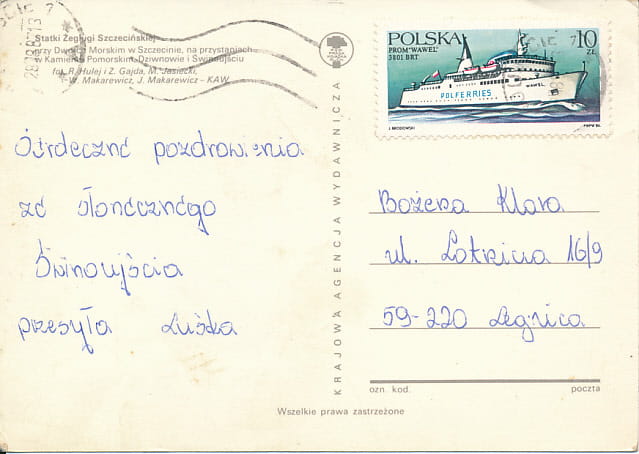 Statki Żeglugi Szczecińskiej
przy Dworcu Morskim w Szczecinie, na przystaniach
w Kamieniu Pomorskim, Dziwnowie i Świnoujściu
fot. R. Hulej i Z. Gajda, M. Jasiecki,
W. Makarewicz, J. Makarewicz – KAW
POLSKA
PROM "WAWEL"
3801 BRT
10
ZŁ
POLFERRIES
WAWEL
J. BRODOWSKI
PWPW 86.
Serdeczne pozdrowienia
ze słonecznego
Świnoujścia
przesyła Luśka
KRAJOWA AGENCJA WYDAWNICZA
Bożena Klara
ul. Lotnicza 16/9
59-220 Legnica
ozn. kod.
poczta
Wszelkie prawa zastrzeżone